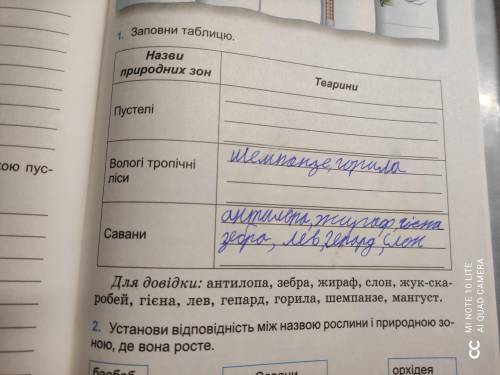 1. Заповни таблицю.
Назви
природних зон
Тварини
Пустелі
Вологі тропічні
ліси
шемпанзе, горила
Савани
антилопа, жираф, гієна
зебра, лев, гепард, слон
кою пус-
Для довідки: антилопа, зебра, жираф, слон, жук-ска-
робей, гієна, лев, гепард, горила, шемпанзе, мангуст.
2. Установи відповідність між назвою рослини і природною зо-
ною, де вона росте.
баобаб
Савани
орхідея
MI NOTE 10 LITE
AI QUAD CAMERA